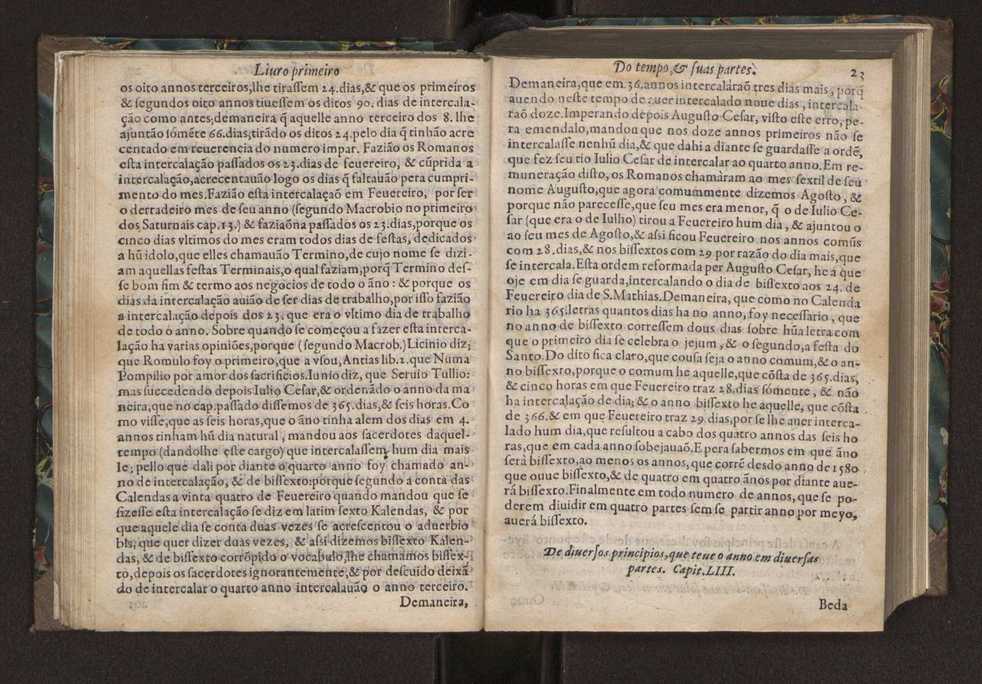 Liuro primeiro
os oito annos terceiros,lhe tirassem 24.dias,& que os primeiros
& segundos oito annos tiuessem os ditos 90. dias de intercala-
ção como antes,demaneira q̃ aquelle anno terceiro dos 8. lhe
ajuntão sómẽte 66.dias,tirãdo os ditos 24.pelo dia q̃ tinhão acre
centado em reuerencia do numero impar. Fazião os Romanos
esta intercalação passados os 23.dias de feuereiro, & cũprida a
intercalação,acrecentauão logo os dias q̃ faltauão pera cumpri-
mento do mes.Fazião esta intercalaçaõ em Feuereiro, por ser
o derradeiro mes de seu anno (segundo Macrobio no primeiro
dos Saturnais cap.13.) & faziaõna passados os 23.dias,porque os
cinco dias vltimos do mes eram todos dias de festas, dedicados
a hũ idolo,que elles chamauão Termino,de cujo nome se dizi-
am aquellas festas Terminais,o qual faziam,porq̃ Termino des-
se bom fim & termo aos negocios de todo o ãno : & porque os
dias da intercalação auião de ser dias de trabalho,por isso fazião
a intercalação depois dos 23. que era o vltimo dia de trabalho
de todo o anno. Sobre quando se começou a fazer esta interca-
lação ha varias opiniões,porque ( segundo Macrob.) Licinio diz;
que Romulo foy o primeiro,que a vsou,Antias lib.2.que Numa
Pompilio por amor dos sacrificios.Iunio diz, que Seruio Tullio:
mas succedendo depois Iulio Cesar,& ordenãdo o anno da ma
neira,que no cap.passado dissemos de 365.dias,& seis horas.Co
mo visse,que as seis horas,que o ãno tinha alem dos dias em 4.
annos tinham hũ dia natural, mandou aos sacerdotes daquel-
tempo (dandolhe este cargo) que intercalassem hum dia mais
le; pello que dali por diante o quarto anno foy chamado an-
no de intercalação, & de bissexto:porque segundo a conta das
Calendas a vinta quatro de Feuereiro quando mandou que se
fizesse esta intercalação se diz em latim sexto Kalendas, & por
que aquele dia se conta duas vezes se acrescentou o aduerbio
bis, que quer dizer duas vezes, & assi dizemos bissexto Kalen-
das, & de bissexto corrõpido o vocabulo,lhe chamamos bissex-
to,depois os sacerdotes ignorantemente,& por descuido deixã
do de intercalar o quarto anno intercalauão o anno terceiro.
Demaneira,
Do tempo,& suas partes. 23
Demaneira,que em 36.annos intercalàraõ tres dias mais, porq̃
auendo neste tempo de auer intercalado noue dias, intercala-
raõ doze.Imperando depois Augusto Cesar, visto este erro, pe-
ra emendalo,mandou que nos doze annos primeiros não se
intercalasse nenhũ dia,& que dahi a diante se guardasse a ordẽ,
que fez seu tio Iulio Cesar de intercalar ao quarto anno.Em re-
muneração disto, os Romanos chamàram ao mes sextil de seu
nome Augusto,que agora comummente dizemos Agosto, &
porque não parecesse,que seu mes era menor, q̃ o de Iulio Ce-
sar (que era o de Iulho) tirou a Feuereiro hum dia , & ajuntou o
ao seu mes de Agosto,& assi ficou Feuereiro nos annos comũs
com 28.dias,& nos bissextos com 29 por razão do dia mais,que
se intercala.Esta ordem reformada per Augusto Cesar, he a que
oje em dia se guarda,intercalando o dia de bissexto aos 24. de
Feuereiro dia de S.Mathias.Demaneira, que como no Calenda
rio ha 365.letras quantos dias ha no anno, foy necessario , que
no anno de bissexto corressem dous dias sobre hũa letra com
que o primeiro dia se celebra o jejum, & o segundo,a festa do
Santo.Do dito fica claro,que cousa seja o anno comum,& o an-
no bissexto,porque o comum he aquelle,que cõsta de 365.dias,
& cinco horas em que Feuereiro traz 28.dias sómente, & não
ha intercalação de dia; & o anno bissexto he aquelle, que cõsta
de 366.& em que Feuereiro traz 29.dias,por se lhe auer interca-
lado hum dia,que resultou a cabo dos quatro annos das seis ho
ras,que em cada anno sobejauaõ.E pera sabermos em que ãno
será bissexto,ao menos os annos,que corrẽ desdo anno de 1580
que ouue bissexto,& de quatro em quatro ãnos por diante aue-
rá bissexto.Finalmente em todo numero de annos,que se po-
derem diuidir em quatro partes sem se partir anno por meyo,
auerá bissexto.
De diuersos principios,que teue o anno em diuersas
partes. Capit.LIII.
Beda